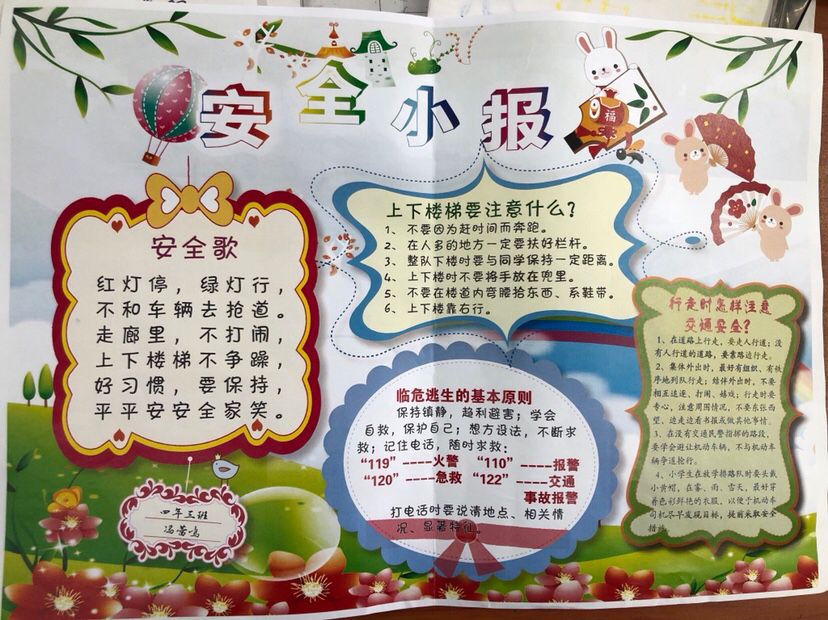 安全小报
福
安全歌
红灯停，绿灯行，
不和车辆去抢道。
走廊里，不打闹，
上下楼梯不争躁，
好习惯，要保持，
平平安安全家笑。
四年三班
上下楼梯要注意什么？
1、不要因为赶时间而奔跑。
2、在人多的地方一定要扶好栏杆。
3、整队下楼时要与同学保持一定距离。
4、上下楼时不要将手放在兜里。
5、不要在楼道内弯腰拾东西、系鞋带。
6、上下楼靠右行。
临危逃生的基本原则
保持镇静，趋利避害；学会
自救，保护自己；想方设法，不断求
救；记住电话，随时求救：
“119”----火警 “110”-----报警
“120”----急救 “122”-----交通
事故报警
打电话时要说请地点、相关情
况、显著特征。
行走时怎样注意
交通安全？
1、在道路上行走，要走人行道；没
有人行道的道路，要靠路边行走。
2、集体外出时，最好有组织、有秩
序地列队行走；结伴外出时，不要
相互追逐、打闹、嬉戏；行走时要
专心，注意周围情况，不要东张西
望、边走边看书报或做其他事情。
3、在没有交通民警指挥的路段，
要学会避让机动车辆，不与机动车
辆争道抢行。
4、小学生在放学排路队时要头戴
小黄帽，在雾、雨、雪天，最好穿
着色彩鲜艳的衣服，以便于机动车
司机尽早发现目标，提前采取安全
措施。